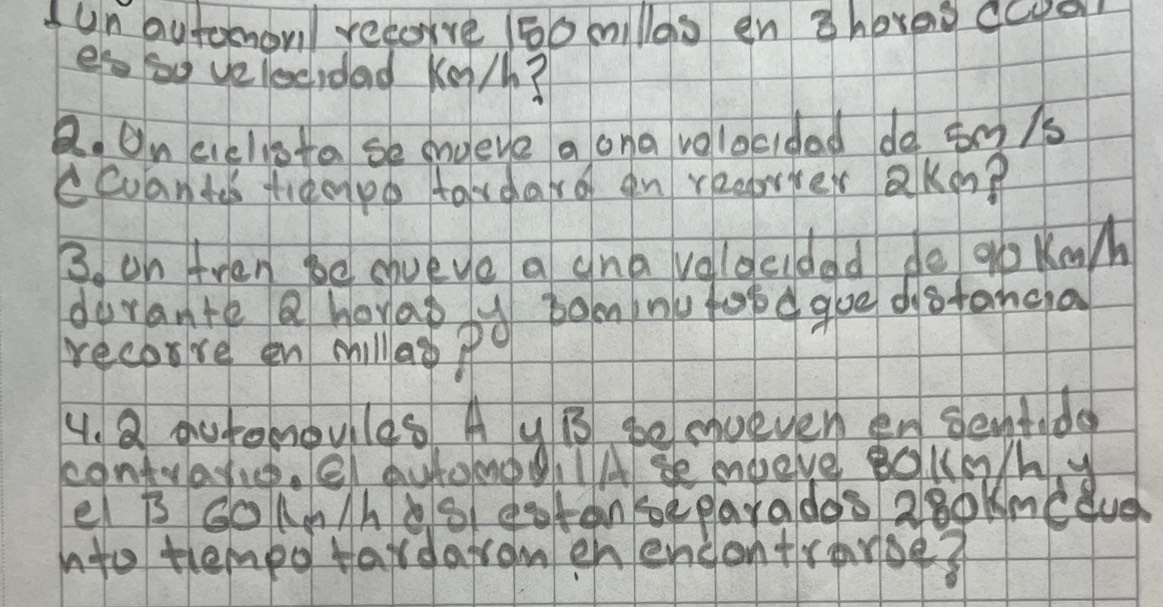 1 un automovil recorre 150 millas en 3 horas ¿cual
es su velocidad Km/h?
2. Un ciclista se mueve a una velocidad de 5m/s
¿Cuanto tiempo tardará en recorrer 2Km?
3. un tren se mueve a una velocidad de 90 Km/h
durante 2 horas y 30 minutos ¿que distancia
recorre en millas?
4. 2 automoviles A y B se mueven en sentido
contrario. El automovil A se mueve 80Km/h y
el B 60Km/h si estan separados 280Km ¿cua
nto tiempo tardaran en encontrarse?